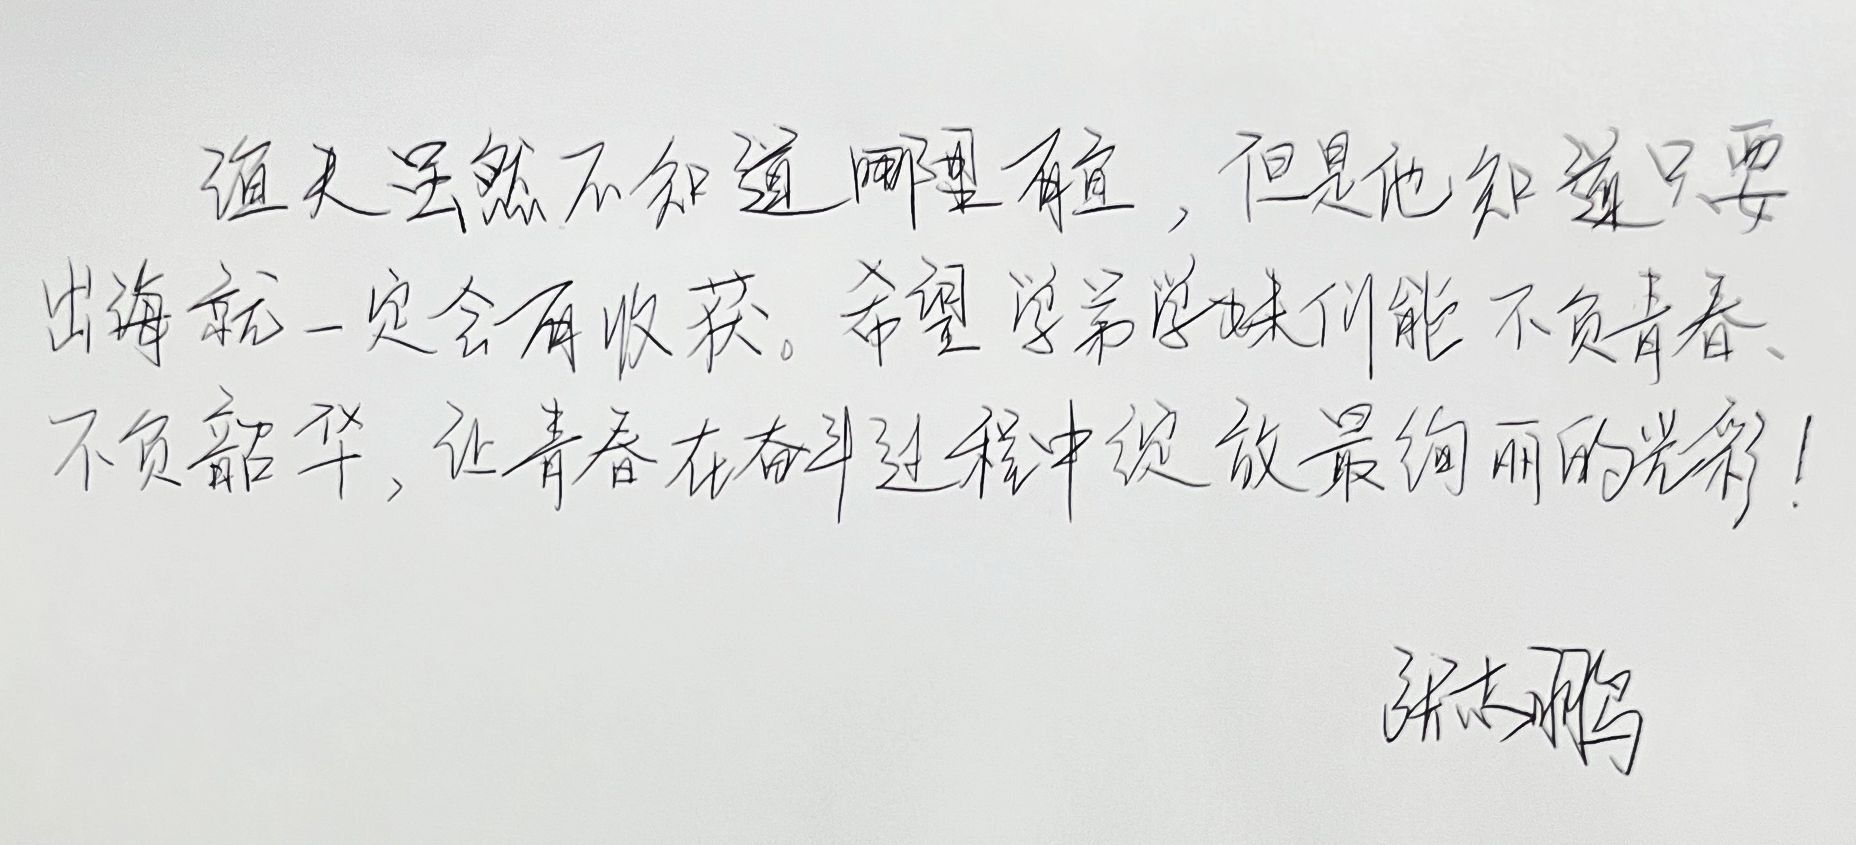 渔夫虽然不知道哪里有鱼，但是他知道只要
出海就一定会有收获。希望学弟学妹们能不负青春、
不负韶华，让青春在奋斗过程中绽放最绚丽的光彩！
张志鹏